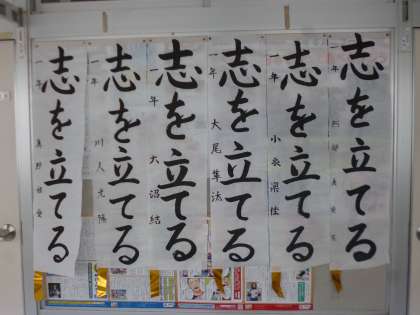 志を立てる
一年
志を立てる
一年 小泉梁佳
志を立てる
一年 大尾隼汰
志を立てる
一年 大沼結
志を立てる
一年 川人
志を立てる
一年